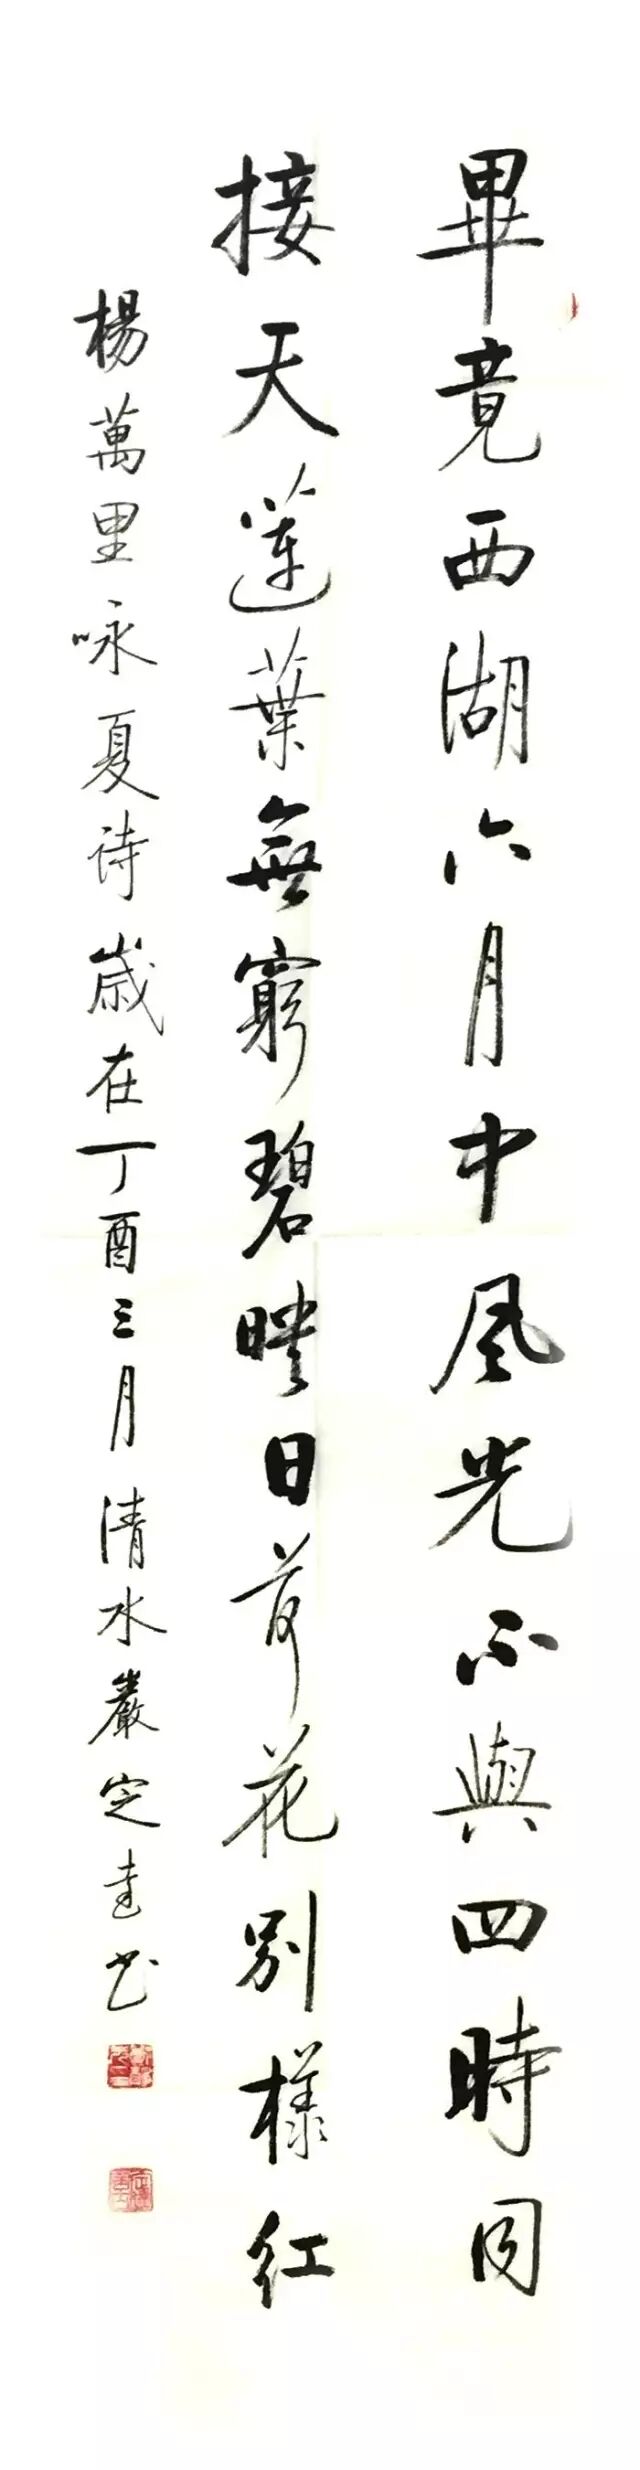 畢竟西湖六月中風光不與四時同
接天蓮葉無窮碧映日荷花別樣红
楊萬里咏夏诗歲在丁酉三月清水嚴定逵书